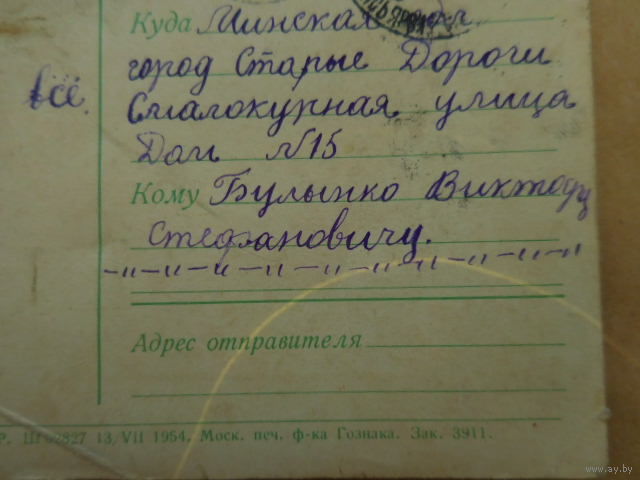 Куда Минская обл.
город Старые Дороги
всё. Смалокурная улица
Дом №15
Кому Булынко Виктору
Стефановичу.
Адрес отправителя
13/VII 1954. Моск. печ. ф-ка Гознака. Зак. 3911.
www.ay.by